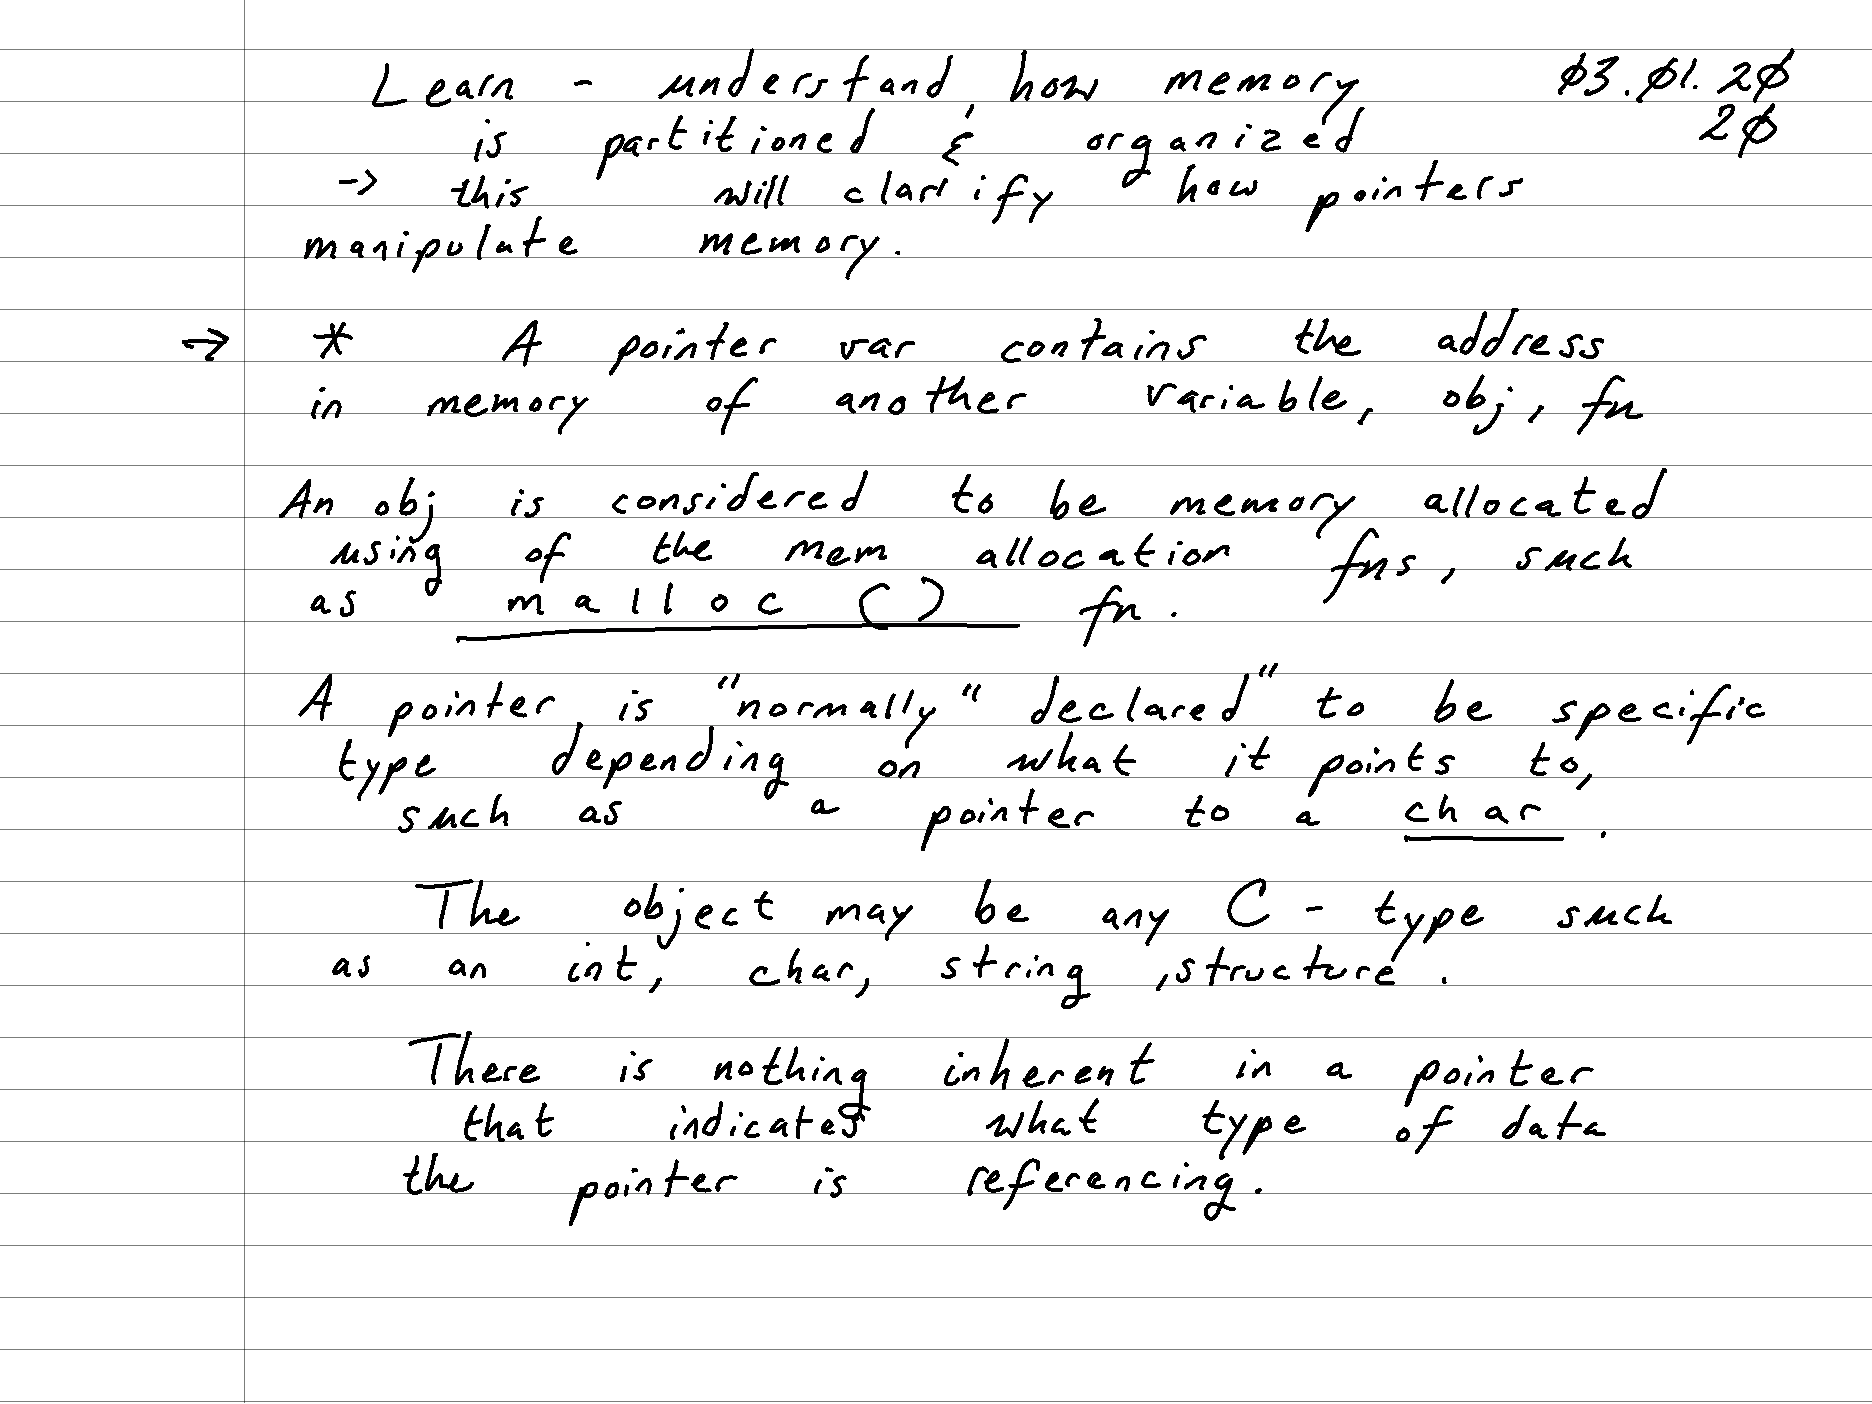 Learn - understand, how memory ø3.ø1.2ø
is partitioned & organized 2ø
-> this will clarify how pointers
manipulate memory.
→ * A pointer var contains the address
in memory of another variable, obj, fn
An obj is considered to be memory allocated
using of the mem allocation fns, such
as malloc () fn.
A pointer, is "normally" declared" to be specific
type depending on what it points to,
such as a pointer to a char.
The object may be any C - type such
as an int, char, string, structure.
There is nothing inherent in a pointer
that indicates what type of data
the pointer is referencing.